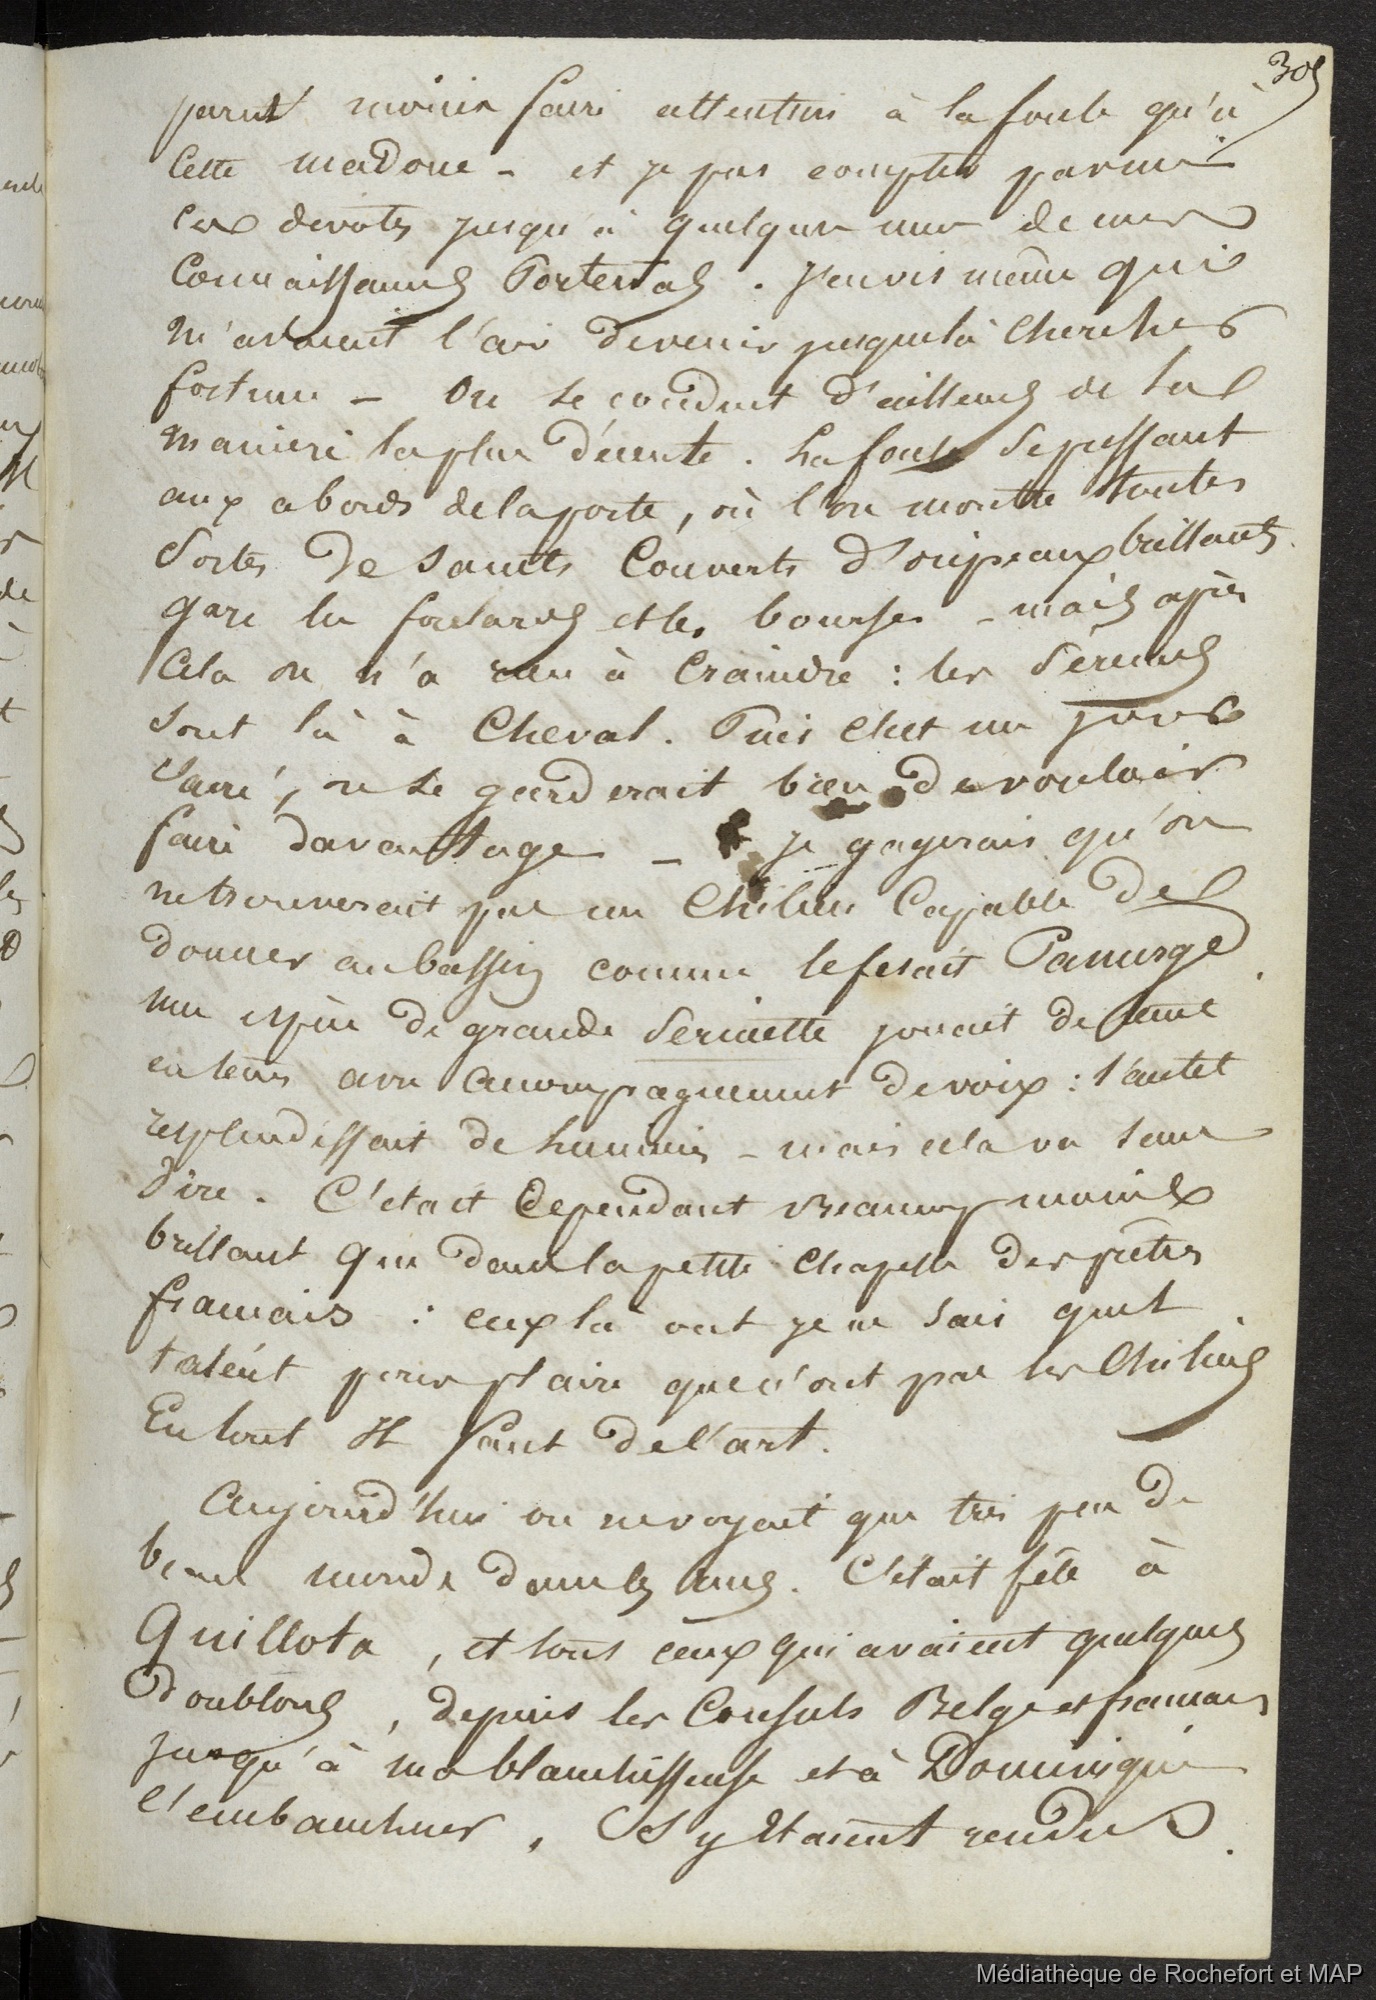 305
parut moins faire attention à la foule qu'à
cette madone - et je pus compter parmi
ces devots jusqu'à quelques unes de mes
Connaissances Portenas. J'en vis même qui
m'avaient l'air de venir jusque là chercher
fortune - On se conduit d'ailleurs de la
maniere la plus décente. La foule se pressant
aux abords de la porte, où l'on montre toutes
Sortes de saints Couverts d'oripeaux brillants.
gare les foulards et les bourses - mais après
Cela on n'a rien à Craindre : les Sérénos
sont là à Cheval. Puis c'est un jour
sacré, on se garderait bien de vouloir
faire davantage - je gagerais qu'on
ne trouverait pas un Chilien Capable de
donner au bassin comme le fesait Panurge.
une espèce de grande Serinette jouait de tems
en tems avec accompagnement de voix : l'autel
resplendissait de lumières - mais cela va sans
dire. C'était Cependant beaucoup moins
brillant que dans la petite Chapelle des prêtres
francais : ceux là ont je ne sais quel
talent pour plaire que n'ont pas les Chiliens
En tout Il faut de l'art.
Aujourd'hui on ne voyait que très peu de
beau monde dans les rues. C'était fête à
Quillota, et tous ceux qui avaient quelques
doublons, depuis les Consuls Belge et francais
jusqu'à ma blanchisseuse et à Dominique
l'embaucheur, S'y étaient rendus.
Médiathèque de Rochefort et MAP